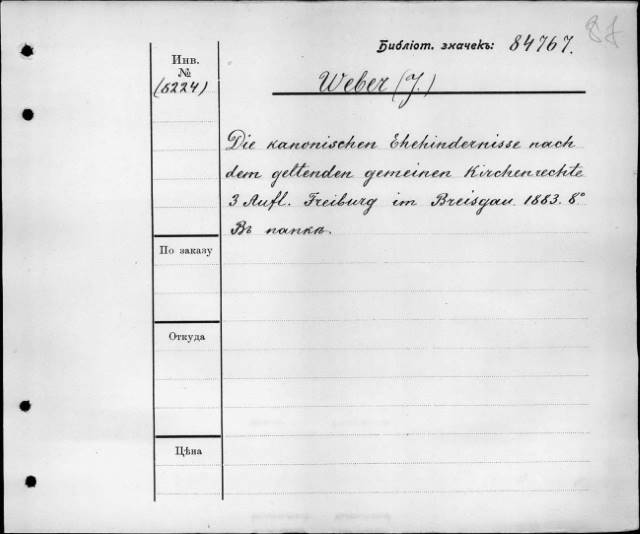 87
Библіот. значекъ: 84767.
Инв.
№
(5224)
Weber (J.)
Die kanonischen Ehehindernisse nach
dem geltenden gemeinen Kirchenrechte
3 Aufl. Freiburg im Breisgau 1883. 8°
Въ папкѣ.
По заказу
Откуда
Цѣна